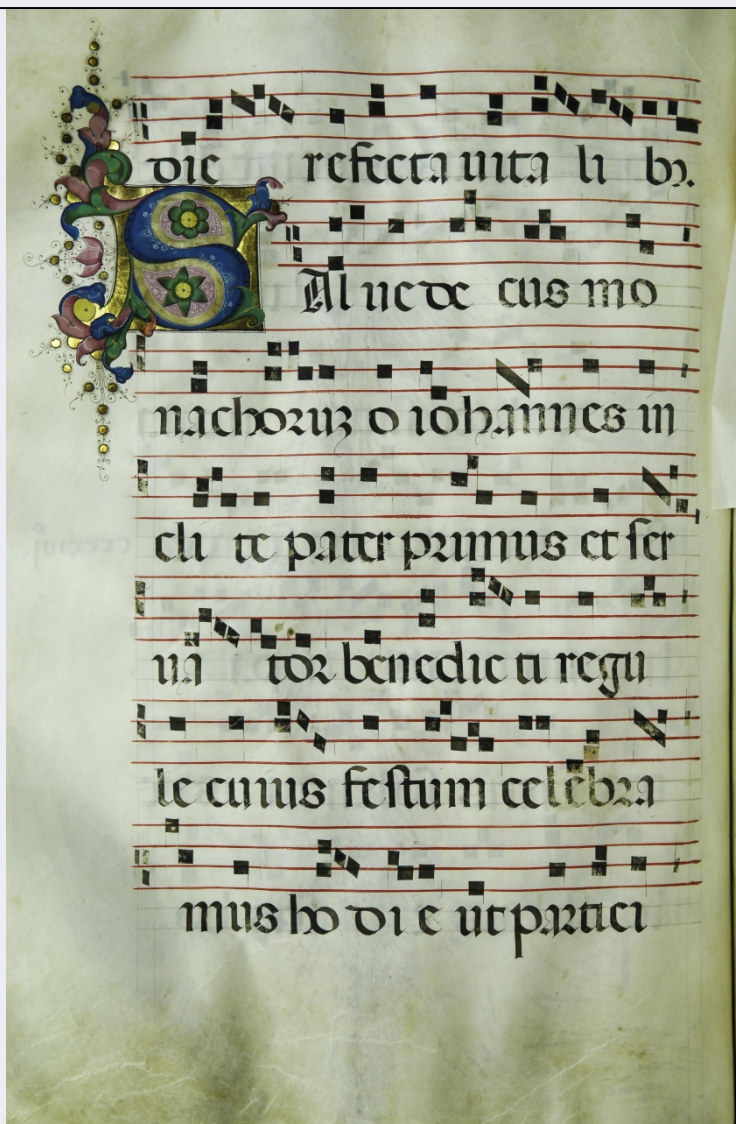 die refecta uita li br.
SAlue de cus mo
nachoruʒ o iohannes in
cli te pater primus et ser
uā tor benedic ti regu
le cuius festum celebra
mus ho di e ut partici